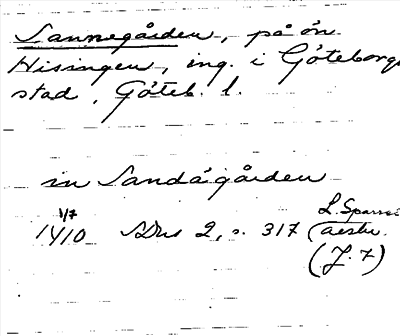 Sannegården, på ön
Hisingen, ing. i Göteborgs
stad, Göteb. l.
in Sandágården
1/7
1410 SDns 2, s. 317 (L. Sparres
avskr.
(J. 7)